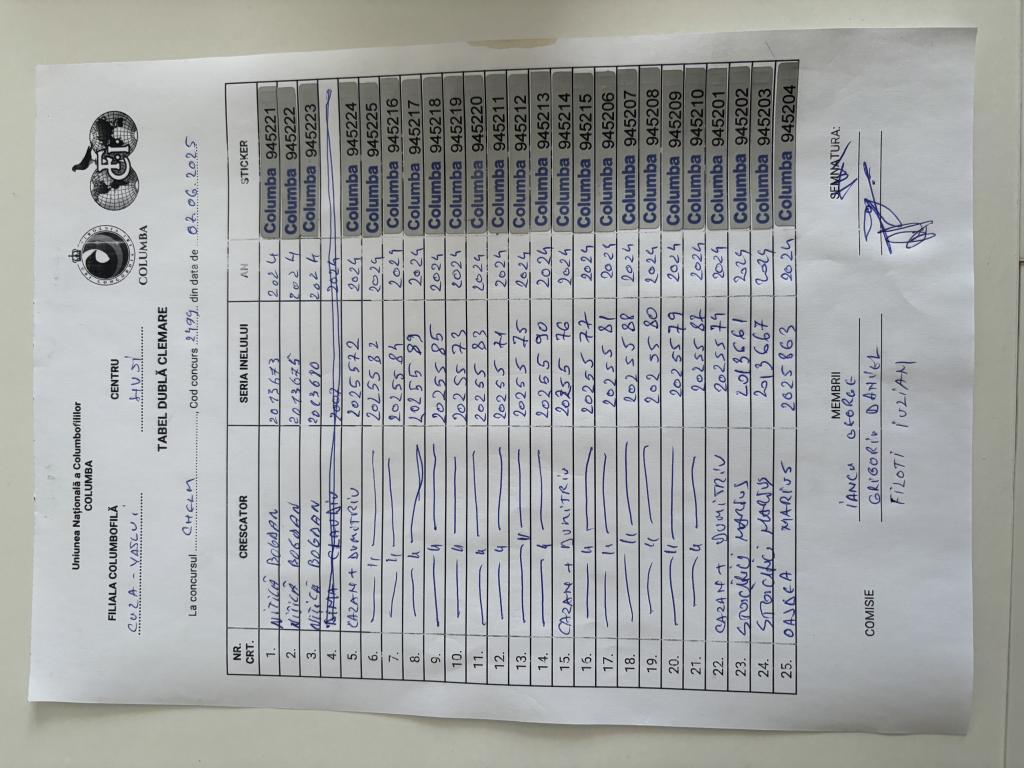 Uniunea Națională a Columbofililor
COLUMBA
COLUMBA
FCI
FILIALA COLUMBOFILĂ
CENTRU
CUZA - VASLUI
HUSI
TABEL DUBLĂ CLEMARE
La concursul CHELM, Cod concurs 2499, din data de 02.06.2025
NR. CRT. CRESCATOR SERIA INELULUI AN STICKER
1. NITICĂ BOGDAN 2013673 2024 Columba 945221
2. NITICĂ BOGDAN 2013675 2024 Columba 945222
3. NITICĂ BOGDAN 2013670 2024 Columba 945223
4. DIMA CLAUDIU 2024
5. CAZAN + DUMITRIU 2025572 2024 Columba 945224
6. — 11 — 2025582 2024 Columba 945225
7. — 11 — 2025584 2024 Columba 945216
8. — 11 — 2025589 2024 Columba 945217
9. — 11 — 2025585 2024 Columba 945218
10. — 11 — 2025573 2024 Columba 945219
11. — 11 — 2025583 2024 Columba 945220
12. — 11 — 2025571 2024 Columba 945211
13. — 11 — 2025575 2024 Columba 945212
14. — 11 — 2025590 2024 Columba 945213
15. CAZAN + DUMITRIU 2025576 2024 Columba 945214
16. — 11 — 2025577 2024 Columba 945215
17. — 11 — 2025581 2024 Columba 945206
18. — 11 — 2025588 2024 Columba 945207
19. — 11 — 2025580 2024 Columba 945208
20. — 11 — 2025579 2024 Columba 945209
21. — 11 — 2025587 2024 Columba 945210
22. CAZAN + DUMITRIU 2025574 2024 Columba 945201
23. MARIUS 2013661 2024 Columba 945202
24. MARIUS 2013667 2024 Columba 945203
25. MARIUS 2025863 2024 Columba 945204
COMISIE
MEMBRII
SEMNATURA:
IANCU GEORGE
GRIGORIU DANIEL
FILOTI IULIAN